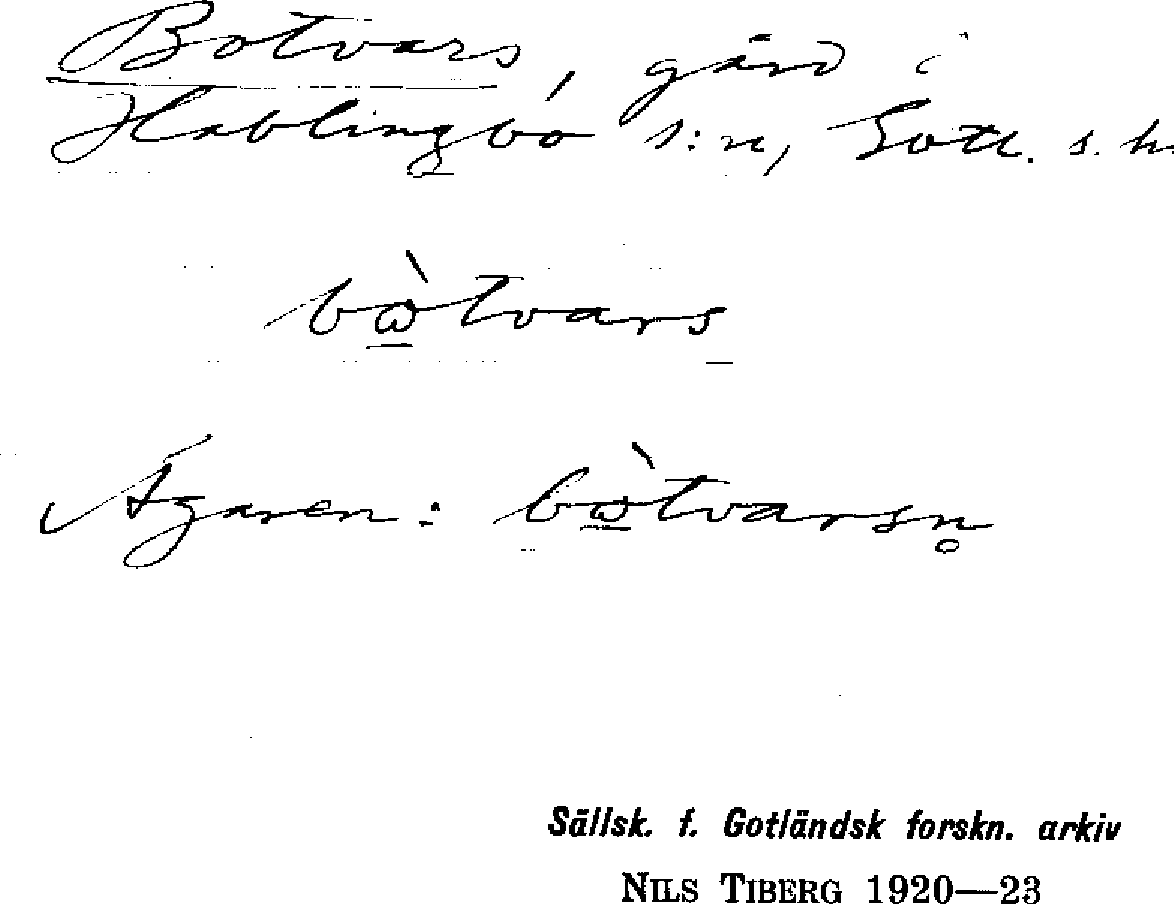 Botvars, gård i
Hablingbo s:n, Gotl. s. h
bɷ̀tvars
Ägaren: bɷ̀tvarsn̥
Sällsk. f. Gotländsk forskn. arkiv
NILS TIBERG 1920—23